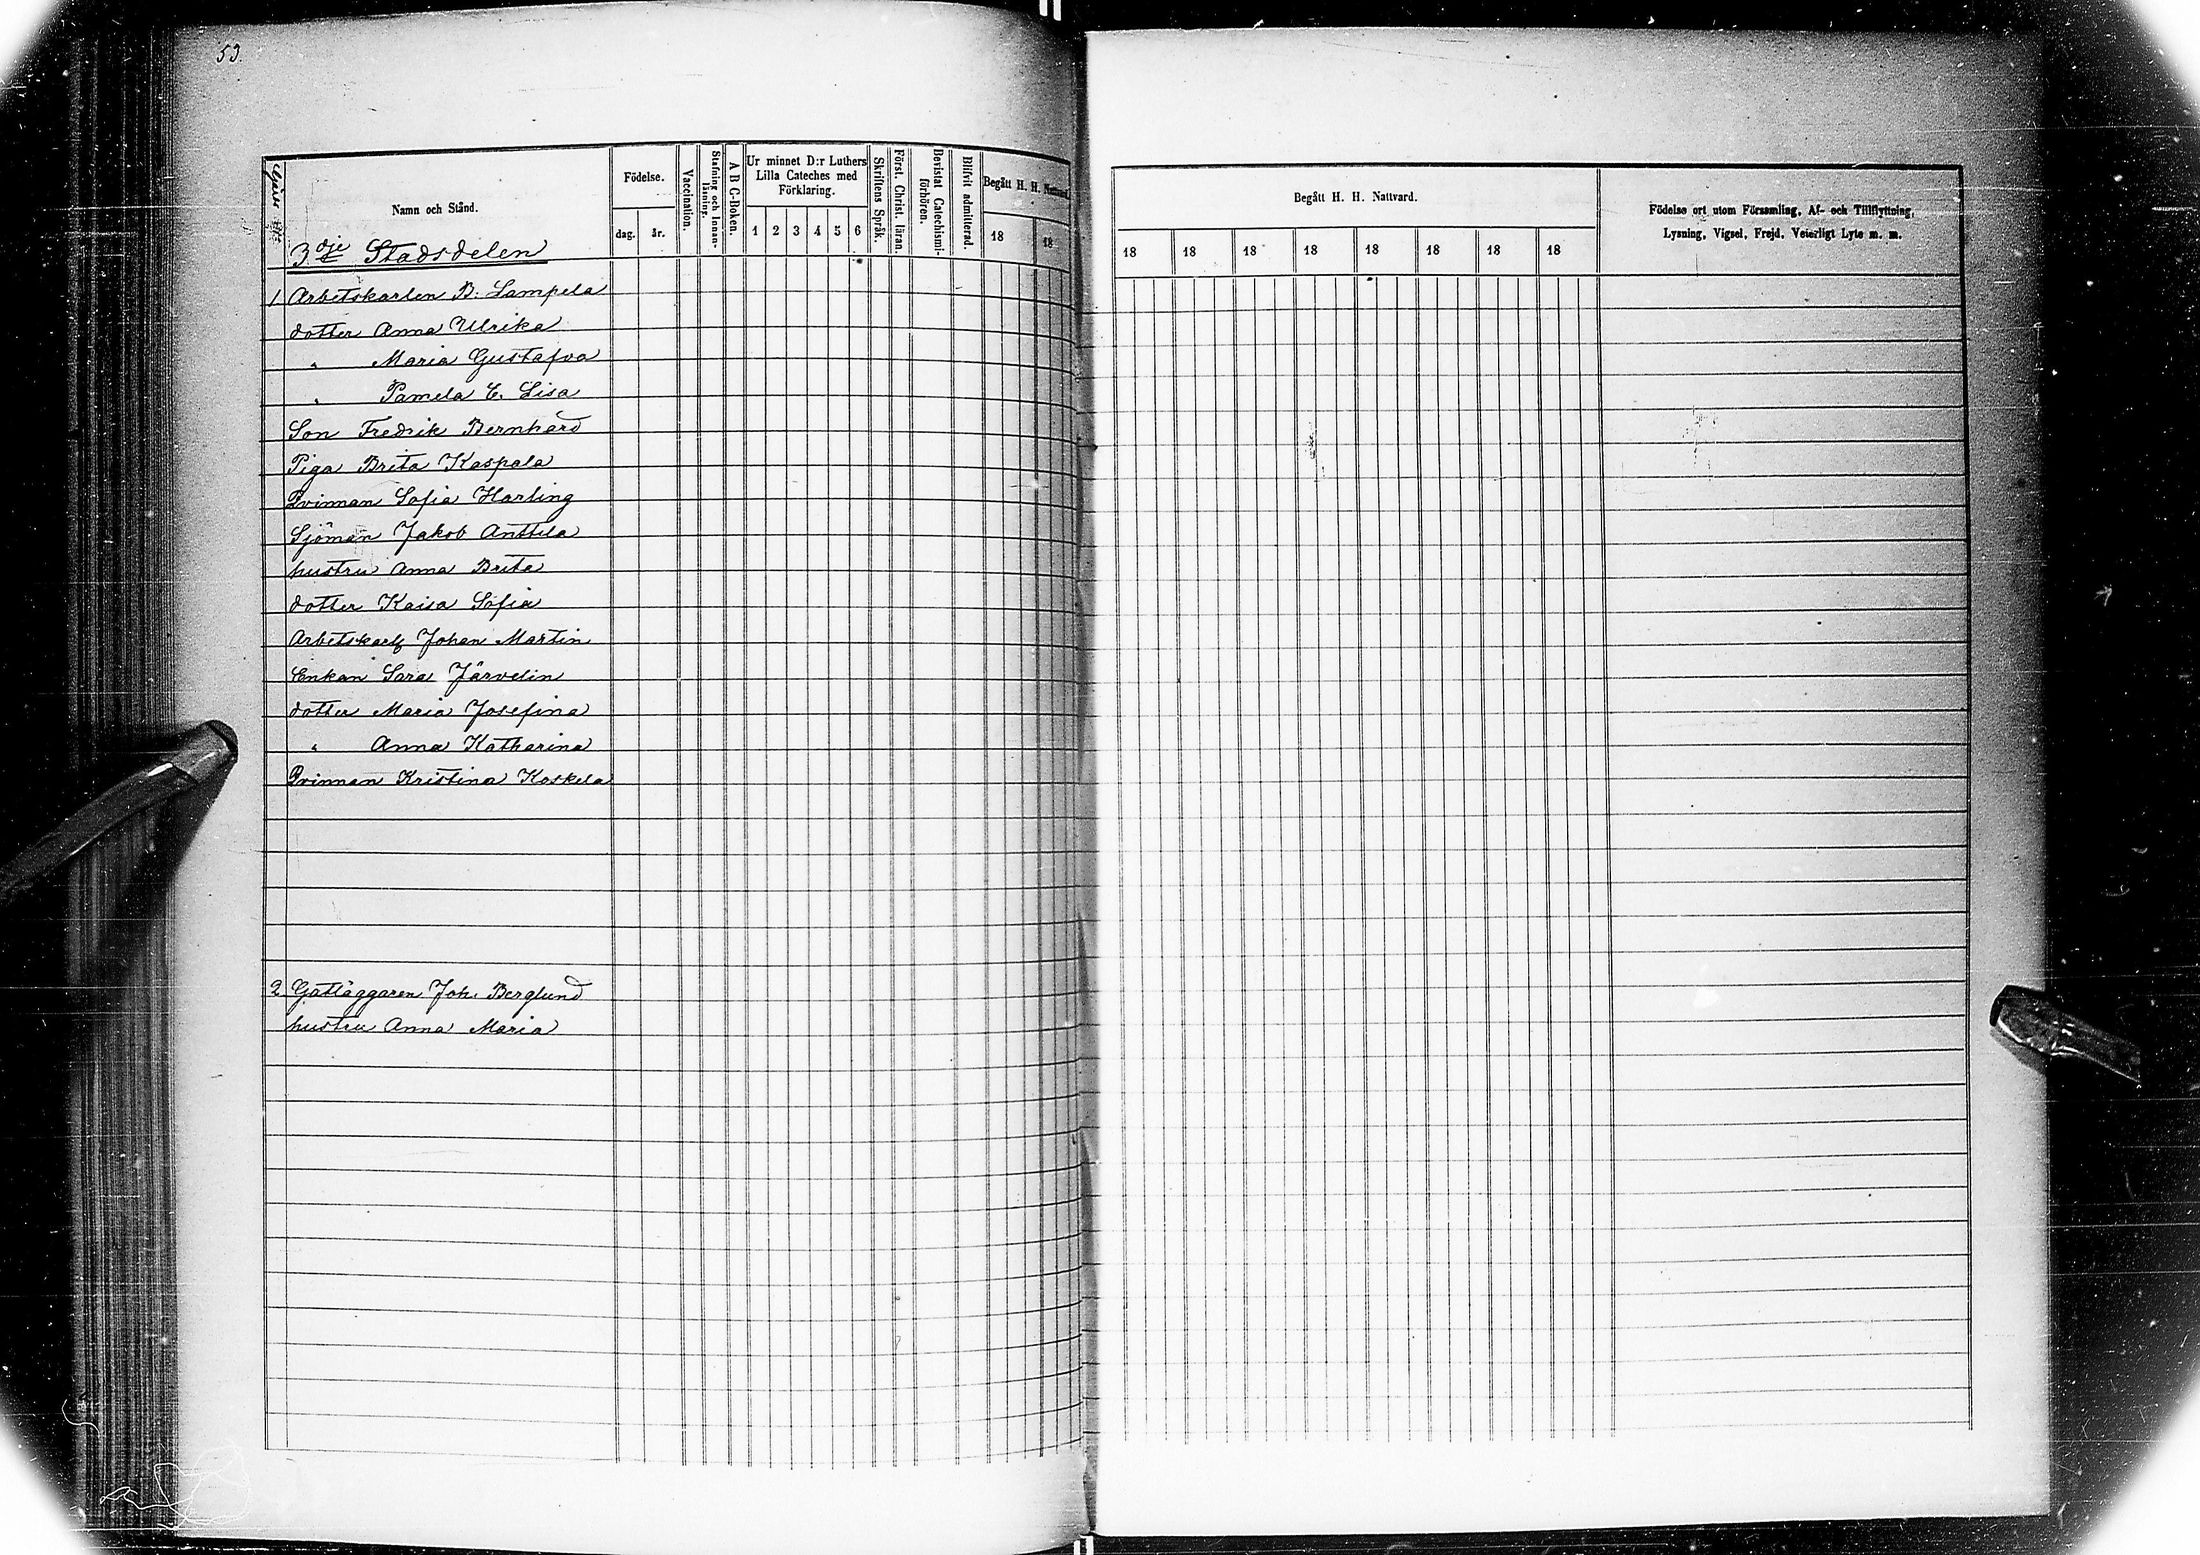 53.
Namn och Stånd.
Födelse.
dag.
år.
Vaccination.
Stafning och Innan-
läsning.
A B C-Boken.
Ur minnet D:r Luthers
Lilla Cateches med
Förklaring.
1 2 3 4 5 6
Skriftens Språk.
Först. Christ. läran.
Bevistat Catechismi-
förhören.
Blifvit admitterad.
Begått H. H. Nattvard.
18 18
Begått H. H. Nattvard.
18 18 18 18 18 18 18 18
Födelse ort utom Församling, Af- och Tillflyttning,
Lysning, Vigsel, Frejd, Veterligt Lyte m. m.
3dje Stadsdelen
1 Arbetskarlen B. Lampela
dotter Anna Ulrika
" Maria Gustafva
" Pamela E. Lisa
Son Fredrik Bernhard
Piga Brita Kaspala
Qvinnan Sofia Harling
Sjöman Jakob Anttila
hustru Anna Brita
dotter Kaisa Sofia
Arbetskarl Johan Martin
Enkan Sara Järvelin
dotter Maria Josefina
" Anna Katharina
Qvinnan Kristina Koskela
2 Gatläggaren Joh. Berglund
hustru Anna Maria